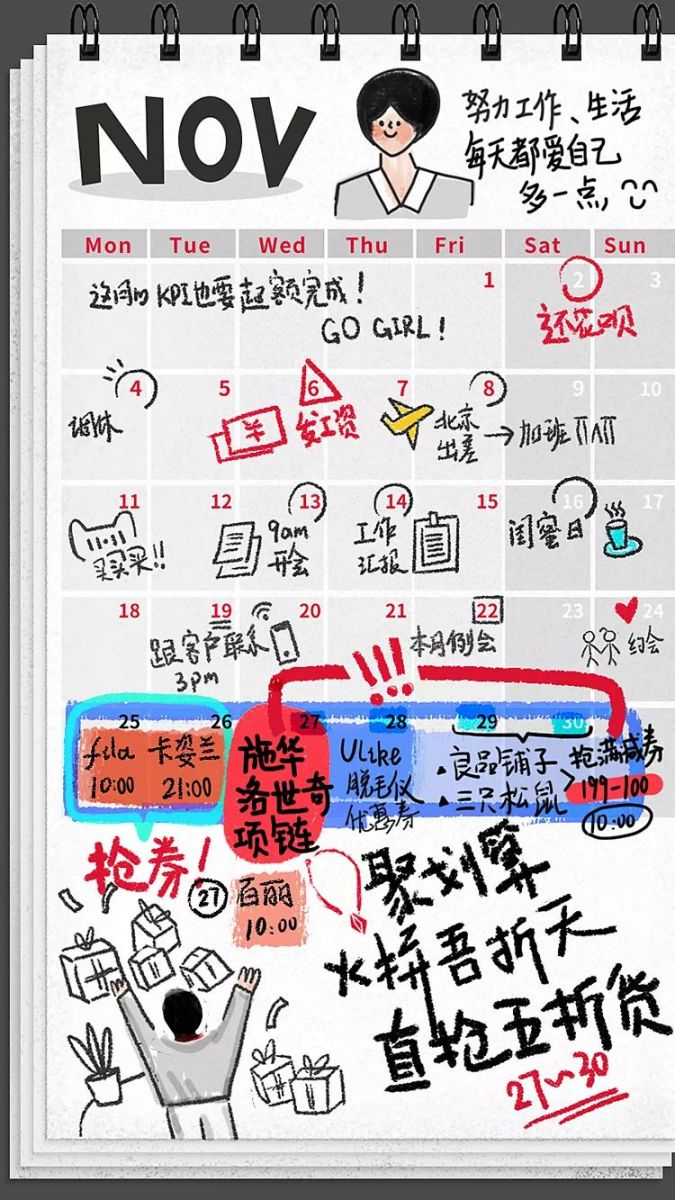 NOV
努力工作、生活
每天都爱自己
多一点,
Mon Tue Wed Thu Fri Sat Sun
1 2 3
这个月的KPI也要超额完成!
GO GIRL!
还花呗
4 5 6 7 8 9 10
调休
¥
发工资
北京
出差
→加班
11 12 13 14 15 16 17
买买买!!
9am
开会
工作
汇报
闺蜜日
18 19 20 21 22 23 24
跟客户联系
3pm
本月例会
约会
!!!
25 26 27 28 29 30
fila
10:00
卡姿兰
21:00
施华
洛世奇
项链
Ulike
脱毛仪
优惠券
良品铺子
三只松鼠
抢满减券
199-100
10:00
抢券!
27
百丽
10:00
聚划算
火拼吾折天
直抢五折货
27~30